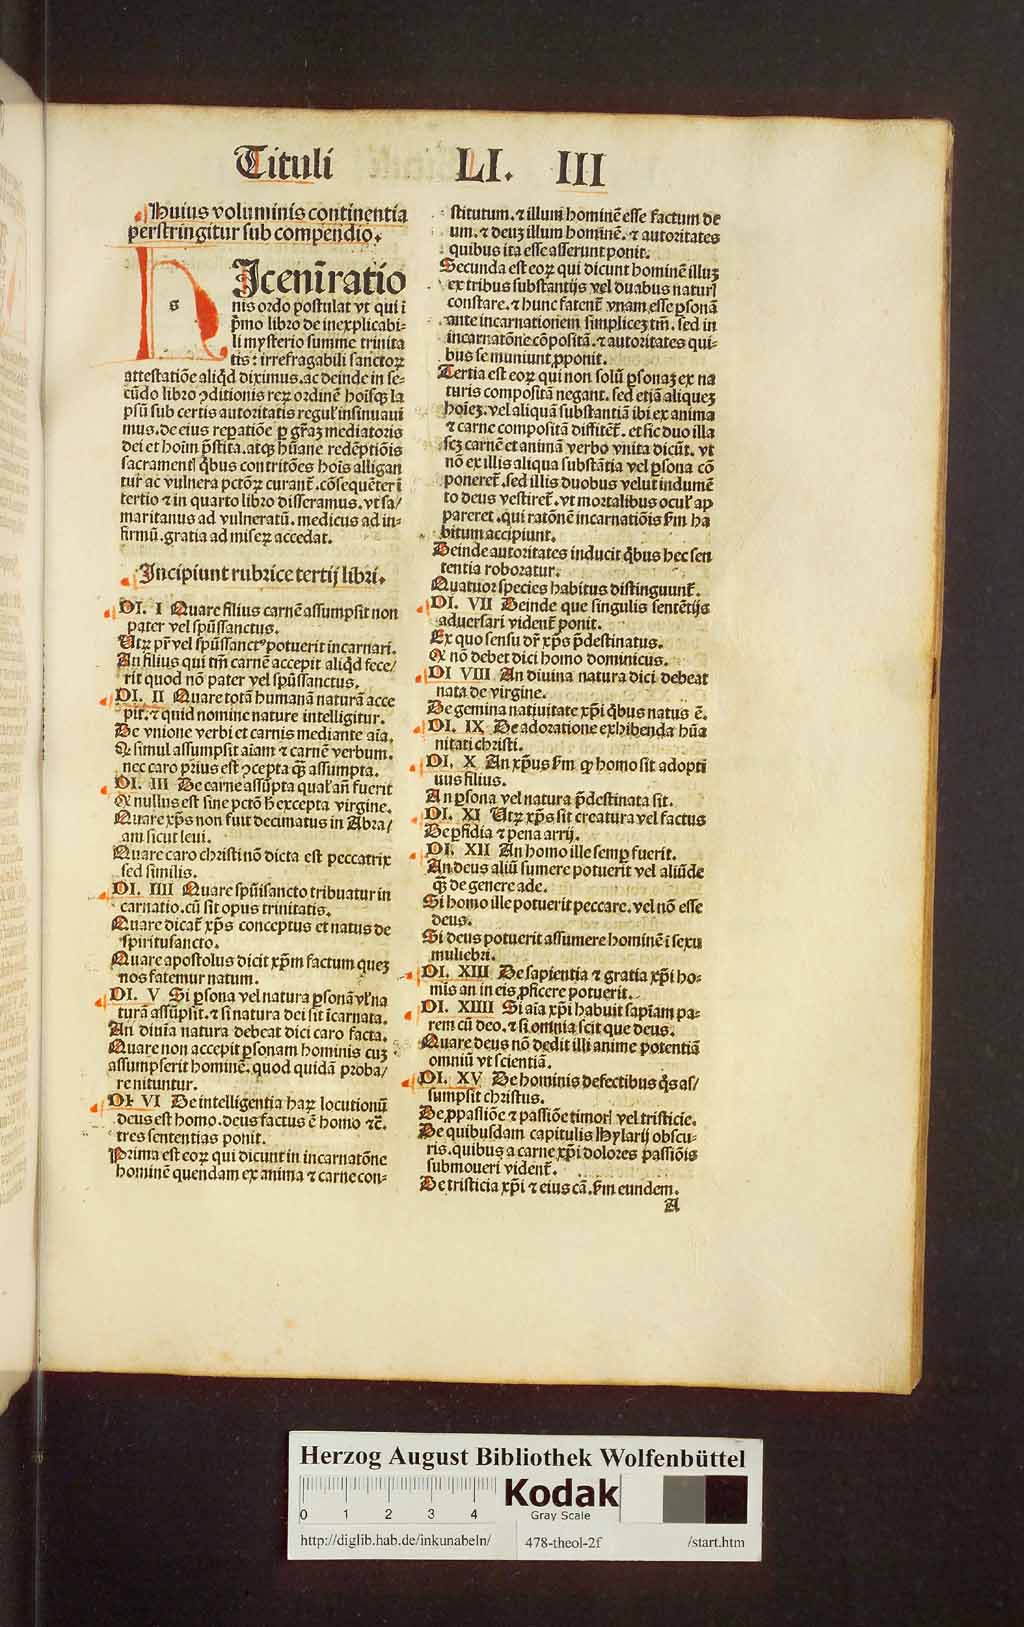 Tituli LI. III
Huius voluminis continentia
perstringitur sub compendio.
H
s
Jceni̅ratio
nis ordo postulat vt qui ī
p̄mo libro de inexplicabi⸗
li mysterio summe trinita
tis: irrefragabili sanctoꝝ
attestatiōe aliqd̓ diximus. ac deinde in se⸗
cūdo libro ꝯditionis reꝝ ordinē hoīsqꝫ la
psū sub certis autoritatis regul̓ insinuaui
mus. de eius repatiōe ꝑ gr̄aꝫ mediatoris
dei et hoīm p̄stita. atqꝫ hūane redēptiōis
sacramentꝭ q̓bus contritōes hoīs alligan
tur ac vulnera pctōꝝ curant̄. cōsequēter ī
tertio ⁊ in quarto libro disseramus. vt sa/
maritanus ad vulneratū. medicus ad in⸗
firmū. gratia ad miseꝝ accedat.
Incipiunt rubrice tertij libri.
DI. I Quare filius carnē assumpsit non
pater vel spūssanctus.
Utꝝ pr̄ vel spūssanctꝰ potuerit incarnari.
An filius qui tm̄ carnē accepit aliqd̓ fece/
rit quod nō pater vel spūssanctus.
DI. II Quare totā humanā naturā acce
pit. ⁊ quid nomine nature intelligitur.
De vnione verbi et carnis mediante aīa.
Q̄ simul assumpsit aīam ⁊ carnē verbum.
nec caro prius est ꝯcepta qꝫ̄ assumpta.
DI. III De carne assūpta qual̓ an̄ fuerit
Q̄ nullus est sine pctō h̓ excepta virgine.
Quare xp̄s non fuit decimatus in Abra/
am sicut leui.
Quare caro christi nō dicta est peccatrix
sed similis.
DI. IIII Quare spūisancto tribuatur in
carnatio. cū sit opus trinitatis.
Quare dicat̄ xp̄s conceptus et natus de
spiritusancto.
Quare apostolus dicit xp̄m factum queꝫ
nos fatemur natum.
DI. V Si ꝑsona vel natura ꝑsonā vl̓ na
turā assūpsit. ⁊ si natura dei sit īcarnata.
An diuīa natura debeat dici caro facta.
Quare non accepit ꝑsonam hominis cuꝫ
assumpserit hominē. quod quidā proba/
re nituntur.
DI. VI De intelligentia haꝝ locutionū
deus est homo. deus factus ē homo ⁊c̄.
tres sententias ponit.
Prima est eoꝝ qui dicunt in incarnatōne
hominē quendam ex anima ⁊ carne con⸗
stitutum. ⁊ illum hominē esse factum de
um. ⁊ deuꝫ illum hominē. ⁊ autoritates
quibus ita esse asserunt ponit.
Secunda est eoꝝ qui dicunt hominē illuꝫ
ex tribus substantijs vel duabus naturꝭ
constare. ⁊ hunc fatent̄ vnam esse ꝑsonā
ante incarnationem simpliceꝫ tm̄. sed in
incarnatōne cōpositā. ⁊ autoritates qui⸗
bus se muniunt ꝓponit.
Tertia est eoꝝ qui non solū ꝑsonaꝫ ex na
turis compositā negant. sed etiā aliqueꝫ
hoīeꝫ. vel aliquā substantiā ibi ex anima
⁊ carne compositā diffitēt̄. et sic duo illa
scꝫ carnē et animā verbo vnita dicūt. vt
nō ex illis aliqua substātia vel ꝑsona cō
poneret̄. sed illis duobus velut indumē
to deus vestiret̄. vt mortalibus ocul̓ ap
pareret. qui ratōnē incarnatiōis fm̄ ha
bitum accipiunt.
Deinde autoritates inducit q̓bus hec sen
tentia roboratur.
Quatuor species habitus distinguunt̄.
DI. VII Deinde que singulis sentētijs
aduersari vident̄ ponit.
Ex quo sensu dr̄ xp̄s p̄destinatus.
Q̄ nō debet dici homo dominicus.
DI VIII An diuina natura dici debeat
nata de virgine.
De gemina natiuitate xp̄i q̓bus natus ē.
DI. IX De adoratione exhibenda hūa
nitati christi.
DI. X An xp̄us fm̄ ꝙ homo sit adopti
uus filius.
An ꝑsona vel natura p̄destinata sit.
DI. XI Utꝝ xp̄s sit creatura vel factus
De ꝑfidia ⁊ pena arrij.
DI. XII An homo ille semꝑ fuerit.
An deus aliū sumere potuerit vel aliūde
qꝫ̄ de genere ade.
Si homo ille potuerit peccare. vel nō esse
deus.
Si deus potuerit assumere hominē ī sexu
muliebri.
DI. XIII De sapientia ⁊ gratia xp̄i ho⸗
mis an in eis ꝓficere potuerit.
DI. XIIII Si aīa xp̄i habuit sapīam pa⸗
rem cū deo. ⁊ si omnia scit que deus.
Quare deus nō dedit illi anime potentiā
omniū vt scientiā.
DI. XV De hominis defectibus q̓s as/
sumpsit christus.
De ꝓpassiōe ⁊ passiōe timorꝭ vel tristicie.
De quibusdam capitulis Hylarij obscu⸗
ris. quibus a carne xp̄i dolores passiōis
submoueri vident̄.
De tristicia xp̄i ⁊ eius cā. fm̄ eundem.
A
Herzog August Bibliothek Wolfenbüttel
0 1 2 3 4
Kodak
Gray Scale
http://diglib.hab.de/inkunabeln/ 478-theol-2f /start.htm